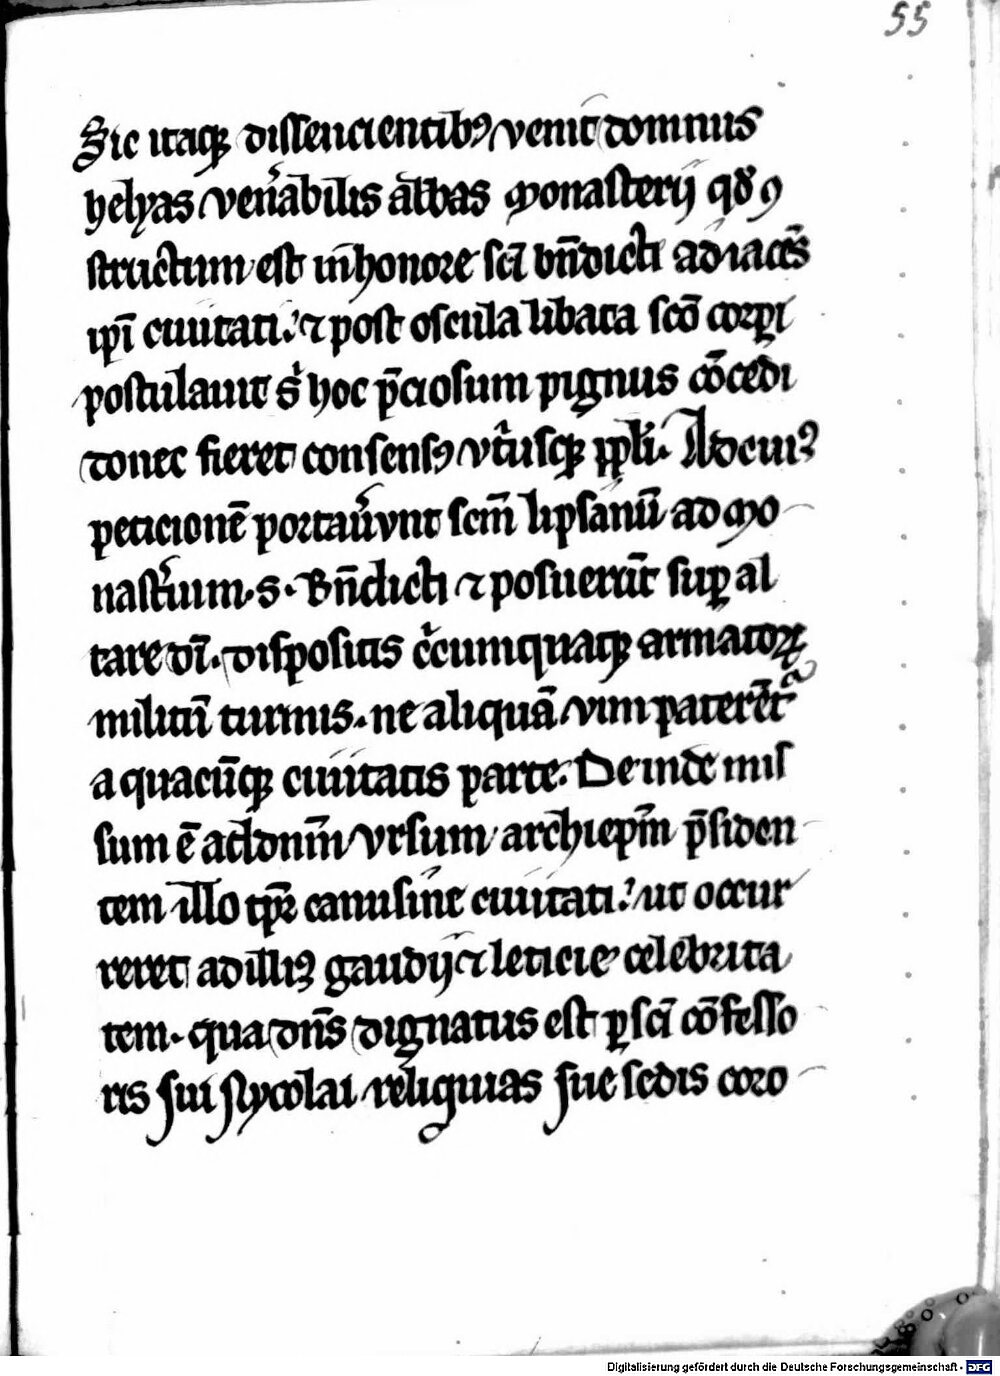 55
Sic itaqꝫ dissencientibꝰ venit domnus
helyas ven̾abilis abbas monasterij qd̾ ꝯ
structum est in honore sc̄i bn̄dicti adiacēs
ipī ciuitati. ⁊ post oscula libata sc̄o corpi
postulauit s̾ hoc p̄ciosum pignus cōcedi
donec fieret consensꝰ vt̾usqꝫ ppl̄i. Ad cuiꝰ
peticionē portauer̄vnt scm̄ lipsanū ad mo
nast̾ium .s. Bn̄dicti ⁊ posuerūt suꝑ al
tare dī. dispositis c̾cumquaqꝫ armatoꝝ
militū turmis. ne aliquā vim paterēt᷑
a quacūqꝫ ciuitatis parte. Deinde mis
sum ē ad domn̄m vrsum archiepm̄ p̄siden
tem illo tp̄r canusine ciuitati. ut occur
reret ad illiꝰ gaudij ⁊ leticie celebrita
tem. qua dn̄s dignatus est ꝑ sc̄i cōfesso
ris sui nycolai reliquias sue sedis coro
Digitalisierung gefördert durch die Deutsche Forschungsgemeinschaft - DFG